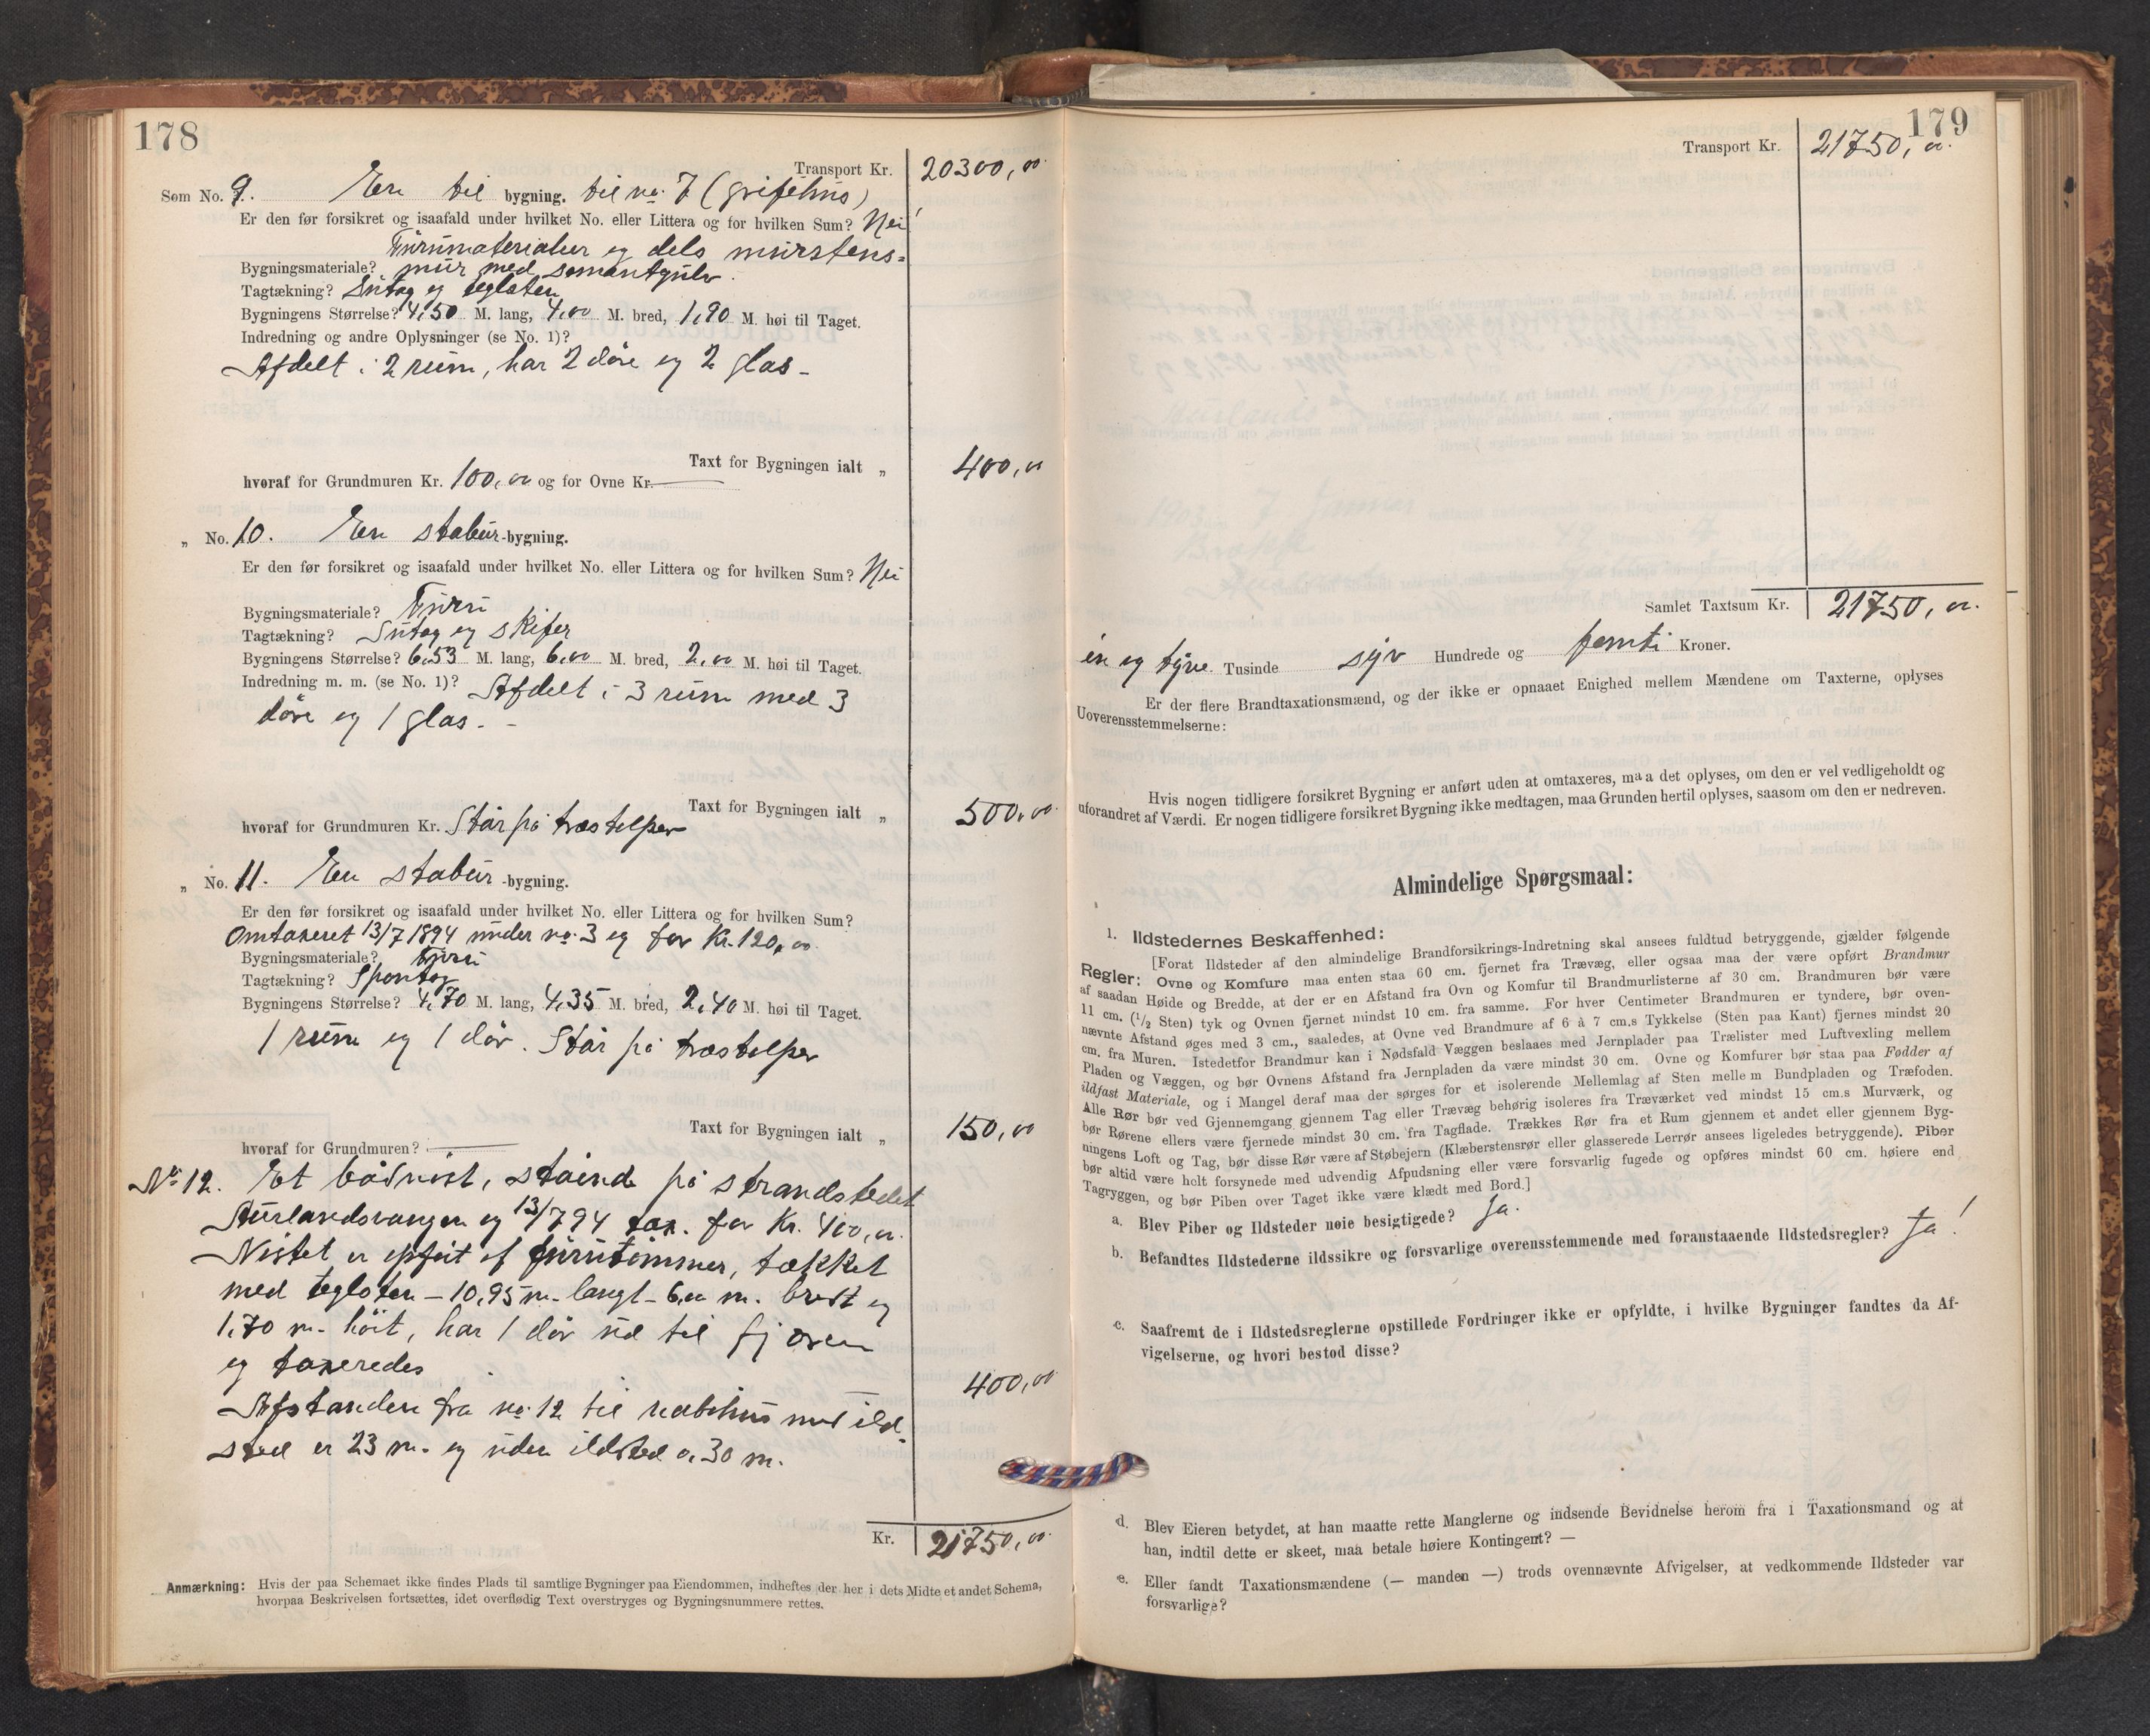 178
Transport Kr. 20300,00
Som No. 9. En til bygning. til no. 7 (grisehus)
Er den før forsikret og isaafald under hvilket No. eller Littera og for hvilken Sum? Nei!
Furumaterialier og dels murstens-
Bygningsmateriale? mur med sementgulv.
Tagtækning? Sutag og teglsten
Bygningens Størrelse? 4,50 M. lang, 4,00 M. bred, 1,90 M. høi til Taget.
Indredning og andre Oplysninger (se No. 1)?
Afdelt i 2 rum, har 2 döre og 2 glas -
Taxt for Bygningen ialt „ 400,00
hvoraf for Grundmuren Kr. 100,00 og for Ovne Kr. —
„ No. 10. En stabur-bygning.
Er den før forsikret og isaafald under hvilket No. eller Littera og for hvilken Sum? Nei
Bygningsmateriale? Furu
Tagtækning? Sutag og skifer
Bygningens Størrelse? 6,53 M. lang, 6,00 M. bred, 2,00 M. høi til Taget.
Indredning m. m. (se No. 1)? Afdelt i 3 rum med 3
döre og 1 glas. -
Taxt for Bygningen ialt „ 500,00
hvoraf for Grundmuren Kr. Står på træstolper
„ No. 11. En stabur-bygning.
Er den før forsikret og isaafald under hvilket No. eller Littera og for hvilken Sum?
Omtaxeret 13/7 1894 under no. 3 og for Kr. 120,00.
Bygningsmateriale? Furu
Tagtækning? Spontag
Bygningens Størrelse? 4,70 M. lang, 4,35 M. bred, 2,40 M. høi til Taget.
1 rum og 1 dör. Står på træstolper
Taxt for Bygningen ialt „ 150,00
hvoraf for Grundmuren? —
No 12. Et bådnöst, stående på strandstedet
Aurlandsvangen og 13/7 94 tax. for Kr. 400,00.
Nöstet er opfört af furutömmer, tækket
med teglsten - 10,95 m. langt - 6,00 m. bredt og
1,70 m. höit, har 1 dör ud til fjoren
og taxeredes 400,00
Afstanden fra no. 12 til nabohus med ild-
sted er 23 m. og uden ildsted 0,30 m.
Kr. 21750,00
Anmærkning: Hvis der paa Schemaet ikke findes Plads til samtlige Bygninger paa Eiendommen, indheftes der her i dets Midte et andet Schema,
hvorpaa Beskrivelsen fortsættes, idet overflødig Text overstryges og Bygningsnummere rettes.
179
Transport Kr. 21750,00.
Samlet Taxtsum Kr. 21750,00.
en og tyve Tusinde syv Hundrede og femti Kroner.
Er der flere Brandtaxationsmænd, og der ikke er opnaaet Enighed mellem Mændene om Taxterne, oplyses
Uoverensstemmelserne:
Hvis nogen tidligere forsikret Bygning er anført uden at omtaxeres, maa det oplyses, om den er vel vedligeholdt og
uforandret af Værdi. Er nogen tidligere forsikret Bygning ikke medtagen, maa Grunden hertil oplyses, saasom om den er nedreven.
Almindelige Spørgsmaal:
1. Ildstedernes Beskaffenhed:
[Forat Ildsteder af den almindelige Brandforsikrings-Indretning skal ansees fuldtud betryggende, gjælder følgende
Regler: Ovne og Komfure maa enten staa 60 cm. fjernet fra Trævæg, eller ogsaa maa der være opført Brandmur
af saadan Høide og Bredde, at der er en Afstand fra Ovn og Komfur til Brandmurlisterne af 30 cm. Brandmuren bør være
11 cm. (1/2 Sten) tyk og Ovnen fjernet mindst 10 cm. fra samme. For hver Centimeter Brandmuren er tyndere, bør oven-
nævnte Afstand øges med 3 cm., saaledes, at Ovne ved Brandmure af 6 à 7 cm.s Tykkelse (Sten paa Kant) fjernes mindst 20
cm. fra Muren. Istedetfor Brandmur kan i Nødsfald Væggen beslaaes med Jernplader paa Trælister med Luftvexling mellem
Pladen og Væggen, og bør Ovnens Afstand fra Jernpladen da være mindst 30 cm. Ovne og Komfurer bør staa paa Fødder af
ildfast Materiale, og i Mangel deraf maa der sørges for et isolerende Mellemlag af Sten mellem Bundpladen og Træfoden.
Alle Rør bør ved Gjennemgang gjennem Tag eller Trævæg behørig isoleres fra Træværket ved mindst 15 cm.s Murværk, og
bør Rørene ellers være fjernede mindst 30 cm. fra Tagflade. Trækkes Rør fra et Rum gjennem et andet eller gjennem Byg-
ningens Loft og Tag, bør disse Rør være af Støbejern (Klæberstensrør eller glasserede Lerrør ansees ligeledes betryggende). Piber
bør altid være holt forsynede med udvendig Afpudsning eller være forsvarlig fugede og opføres mindst 60 cm. høiere end
Tagryggen, og bør Piben over Taget ikke være klædt med Bord.]
a. Blev Piber og Ildsteder nøie besigtigede? Ja.
b. Befandtes Ildstederne ildssikre og forsvarlige overensstemmende med foranstaaende Ildstedsregler? Ja!
c. Saafremt de i Ildstedsreglerne opstillede Fordringer ikke er opfyldte, i hvilke Bygninger fandtes da Af-
vigelserne, og hvori bestod disse?
d. Blev Eieren betydet, at han maatte rette Manglerne og indsende Bevidnelse herom fra 1 Taxationsmand og at
han, indtil dette er skeet, maa betale høiere Kontingent? —
e. Eller fandt Taxationsmændene (— manden —) trods ovennævnte Afvigelser, at vedkommende Ildsteder var
forsvarlige?